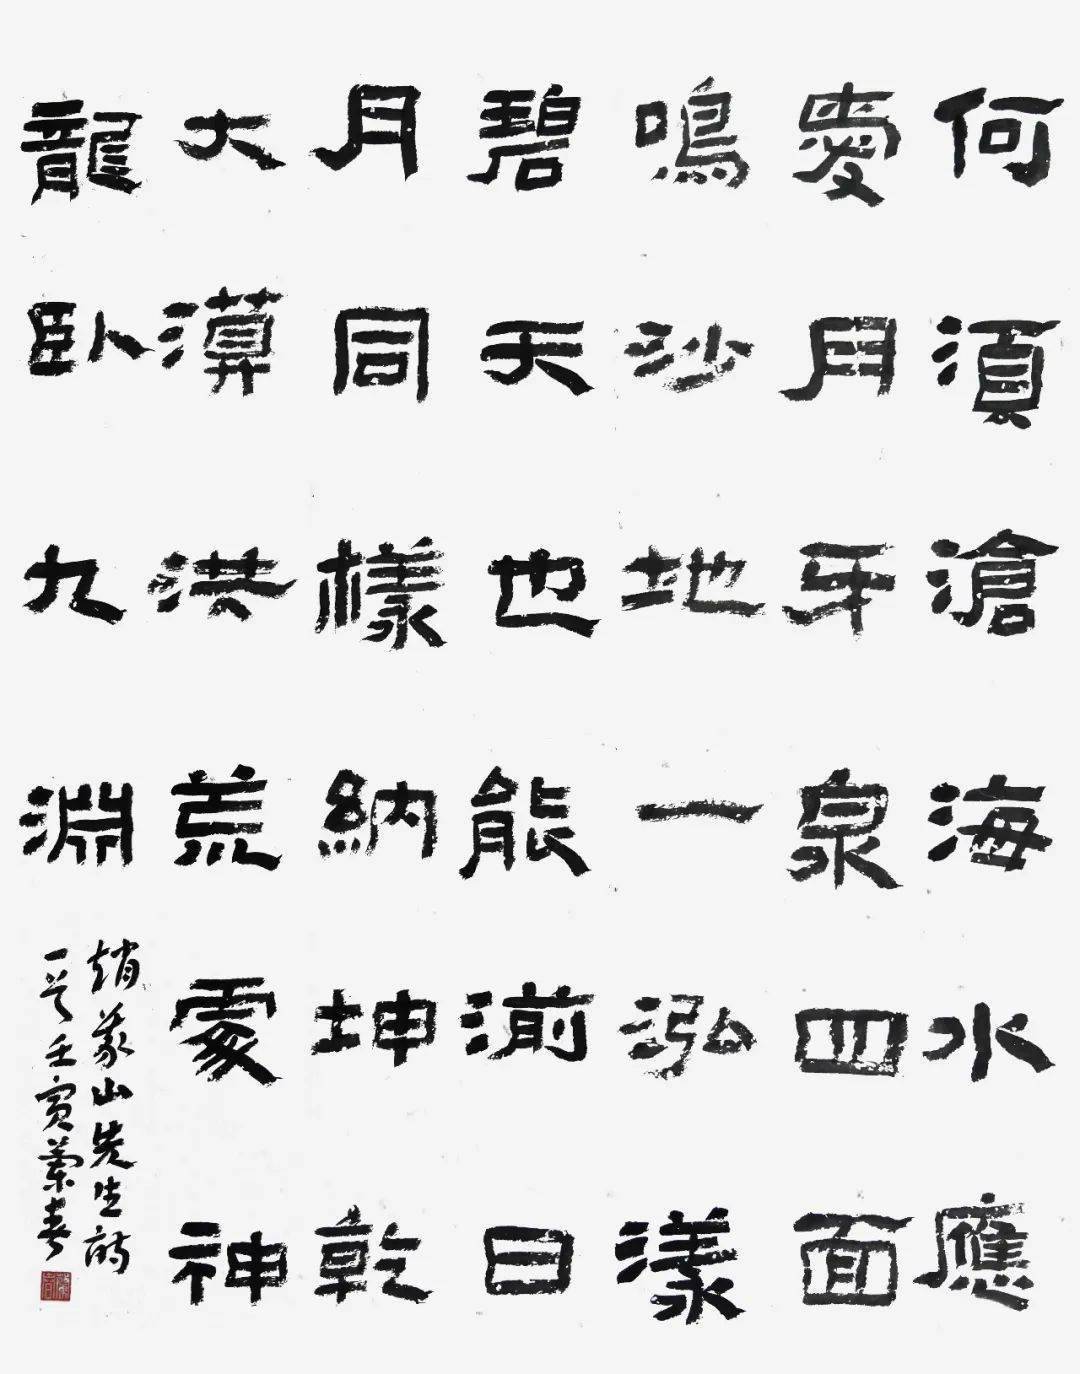 何須滄海水應
愛月牙泉四面
鳴沙地一泓漾
碧天也能湔日
月同樣納坤乾
大漠洪荒處神
龍臥九淵
趙義山先生詩
一首壬寅蘭春